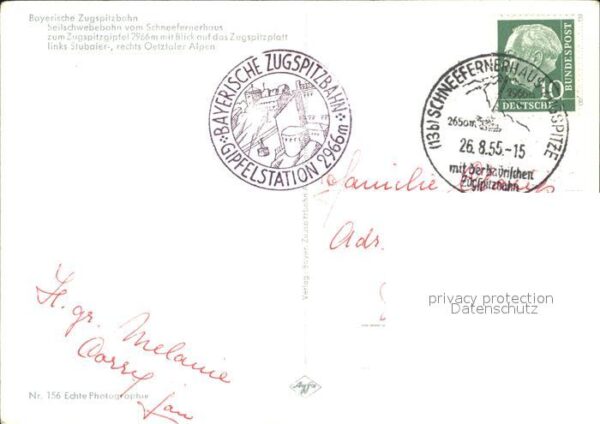 Bayerische Zugspitzbahn
Seilschwebebahn vom Schneefernerhaus
zum Zugspitzgipfel 2966m mit Blick auf das Zugspitzplatt
links Stubaier-, rechts Oetztaler Alpen.
BAYERISCHE ZUGSPITZBAHN
GIPFELSTATION 2966m
10
DEUTSCHE BUNDESPOST
(13b) SCHNEEFERNERHAUS ZUGSPITZE
2966m
2650m
26.8.55.-15
mit der bayrischen
Zugspitzbahn
Familie
Adr.
H. gr. Melanie
Jan
Verlag Bayer. Zugspitzbahn
privacy protection
Datenschutz
Agfa
Nr. 156 Echte Photographie